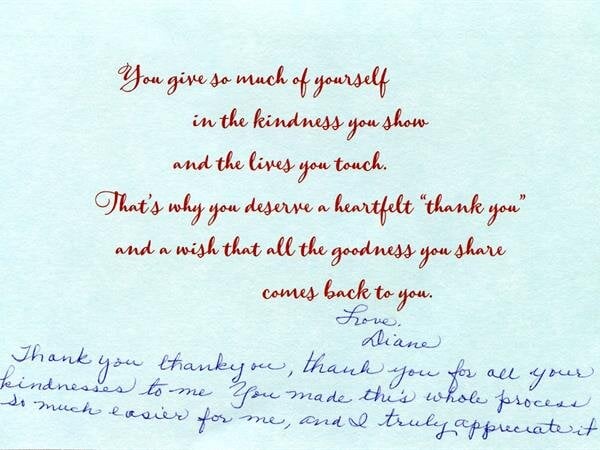 You give so much of yourself
in the kindness you show
and the lives you touch.
That's why you deserve a heartfelt "thank you"
and a wish that all the goodness you share
comes back to you.
Love,
Diane
Thank you thankyou, thank you for all your
kindnesses to me You made this whole process
so much easier for me, and I truly appreciate it